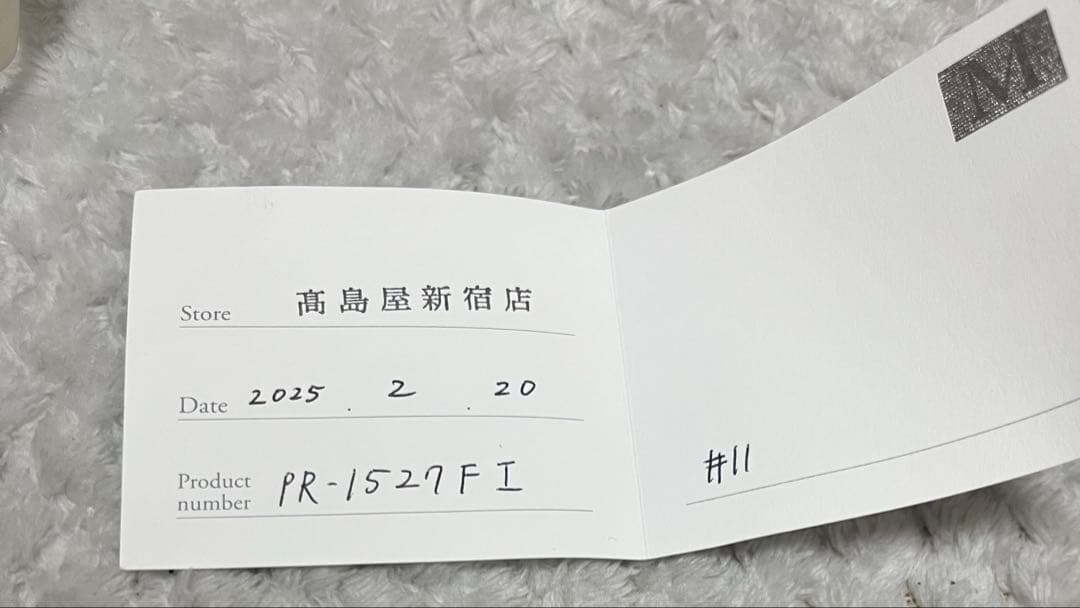 Store 髙島屋新宿店
Date 2025 . 2 . 20
Product number PR-1527FI
#11
M